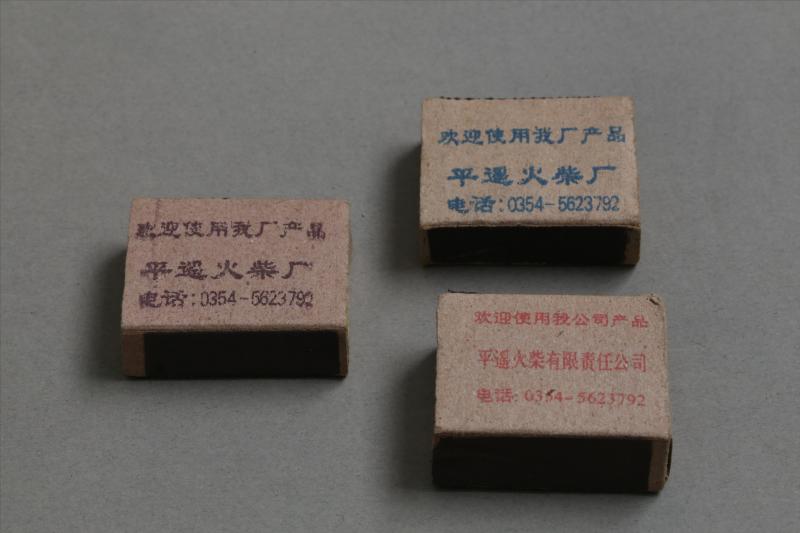 欢迎使用我厂产品
平遥火柴厂
电话:0354-5623792
欢迎使用我厂产品
平遥火柴厂
电话:0354-5623792
欢迎使用我公司产品
平遥火柴有限责任公司
电话:0354-5623792